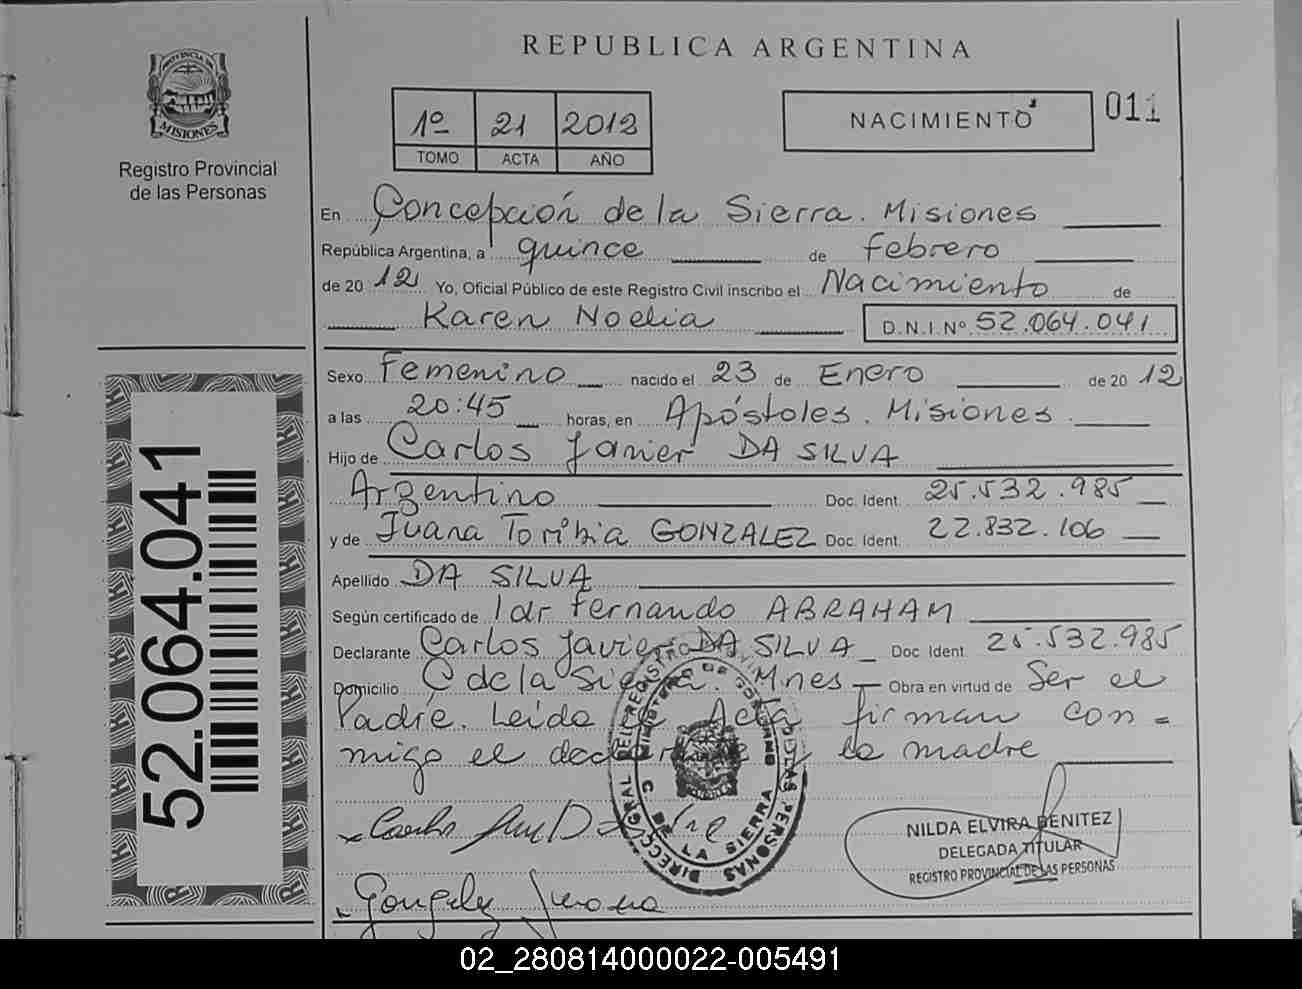 REPUBLICA ARGENTINA
PROVINCIA DE
MISIONES
Registro Provincial
de las Personas
1º 21 2012
TOMO ACTA AÑO
NACIMIENTO
011
En Concepción de la Sierra. Misiones
República Argentina, a quince de febrero
de 2012 Yo, Oficial Público de este Registro Civil inscribo el Nacimiento de
Karen Noelia D.N.I. Nº 52.064.041
Sexo Femenino nacido el 23 de Enero de 2012
a las 20:45 horas, en Apóstoles. Misiones
Hijo de Carlos Javier DA SILVA
Argentino Doc. Ident. 25.532.985
y de Juana Toribia GONZALEZ Doc. Ident. 22.832.106
Apellido DA SILVA
Según certificado de Fernando ABRAHAM
Declarante Carlos Javier DA SILVA Doc. Ident. 25.532.985
Domicilio C de la Sierra. Mnes Obra en virtud de Ser el
Padre. Leída el Acta firman con=
migo el declarante y la madre
52.064.041
DIRECC. GRAL DEL REGISTRO PROVINCIAL DE LAS PERSONAS
MINISTERIO DE GOBIERNO
C DE LA SIERRA
NILDA ELVIRA BENITEZ
DELEGADA TITULAR
REGISTRO PROVINCIAL DE LAS PERSONAS
Gonzalez Juana
02_280814000022-005491